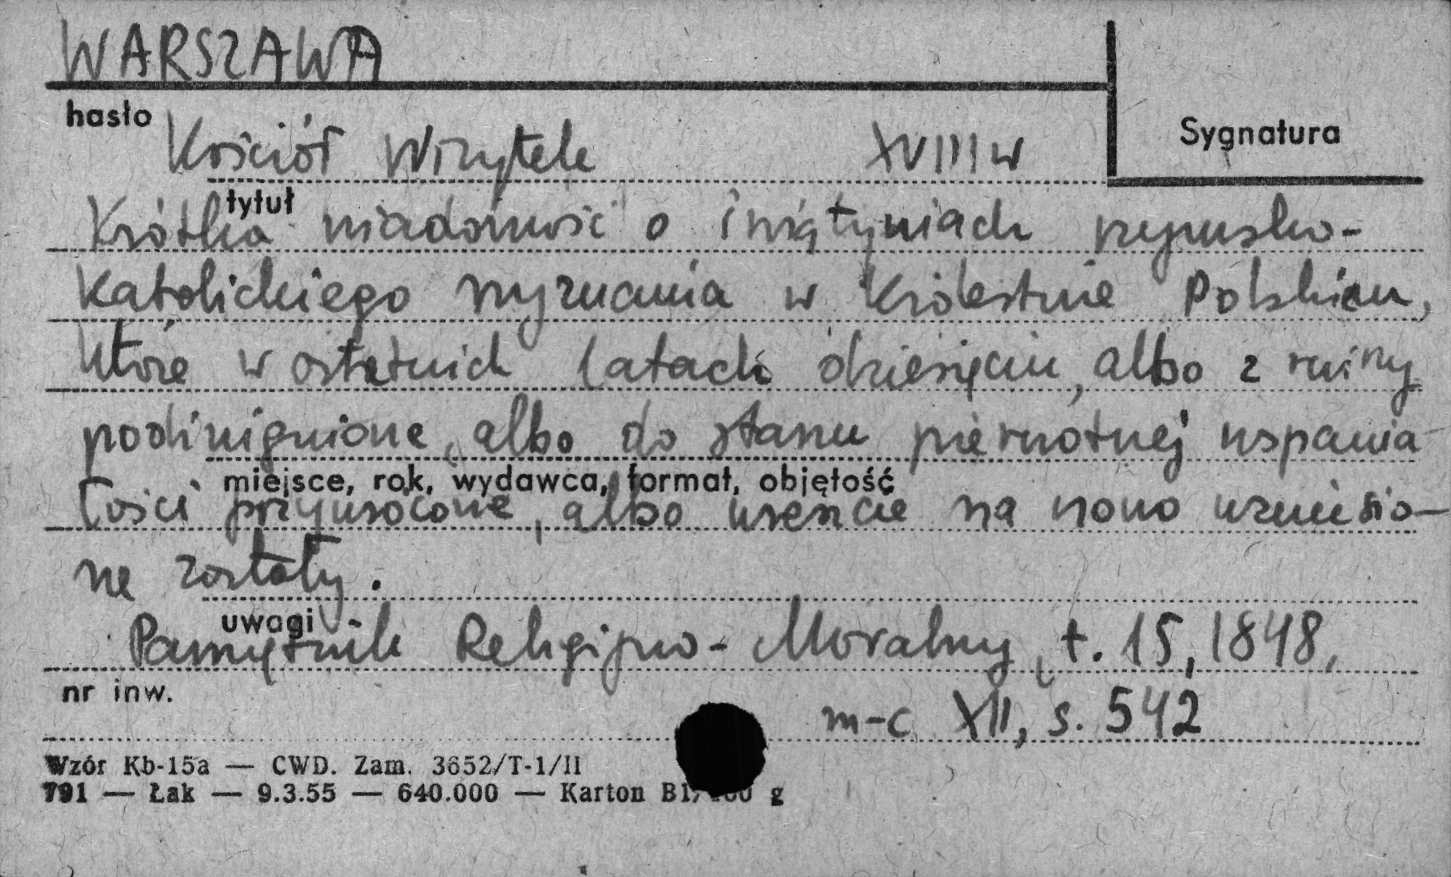 WARSZAWA
hasło
Sygnatura
Kościół Wizytek XVIII w
tytuł
Krótka wiadomość o świątyniach rzymsko-
katolickiego wyznania w Królestwie Polskiem,
które w ostatnich latach dziesięciu, albo z ruiny
podźwignione, albo do stanu pierwotnej wspania-
miejsce, rok, wydawca, format, objętość
łości przywrócone, albo wreszcie na nowo wzniesio-
ne zostały.
uwagi
Pamiętnik Religijno-Moralny, t. 15, 1848,
nr inw.
m-c XII, s. 542
Wzór Kb-15a — CWD. Zam. 3652/T-1/II
791 — Łak — 9.3.55 — 640.000 — Karton g